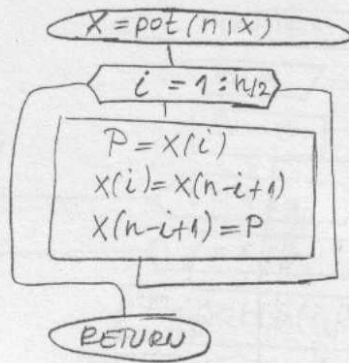 X = pot(n, x)
i = 1 : n/2
P = X(i)
X(i) = X(n-i+1)
X(n-i+1) = P
RETURN